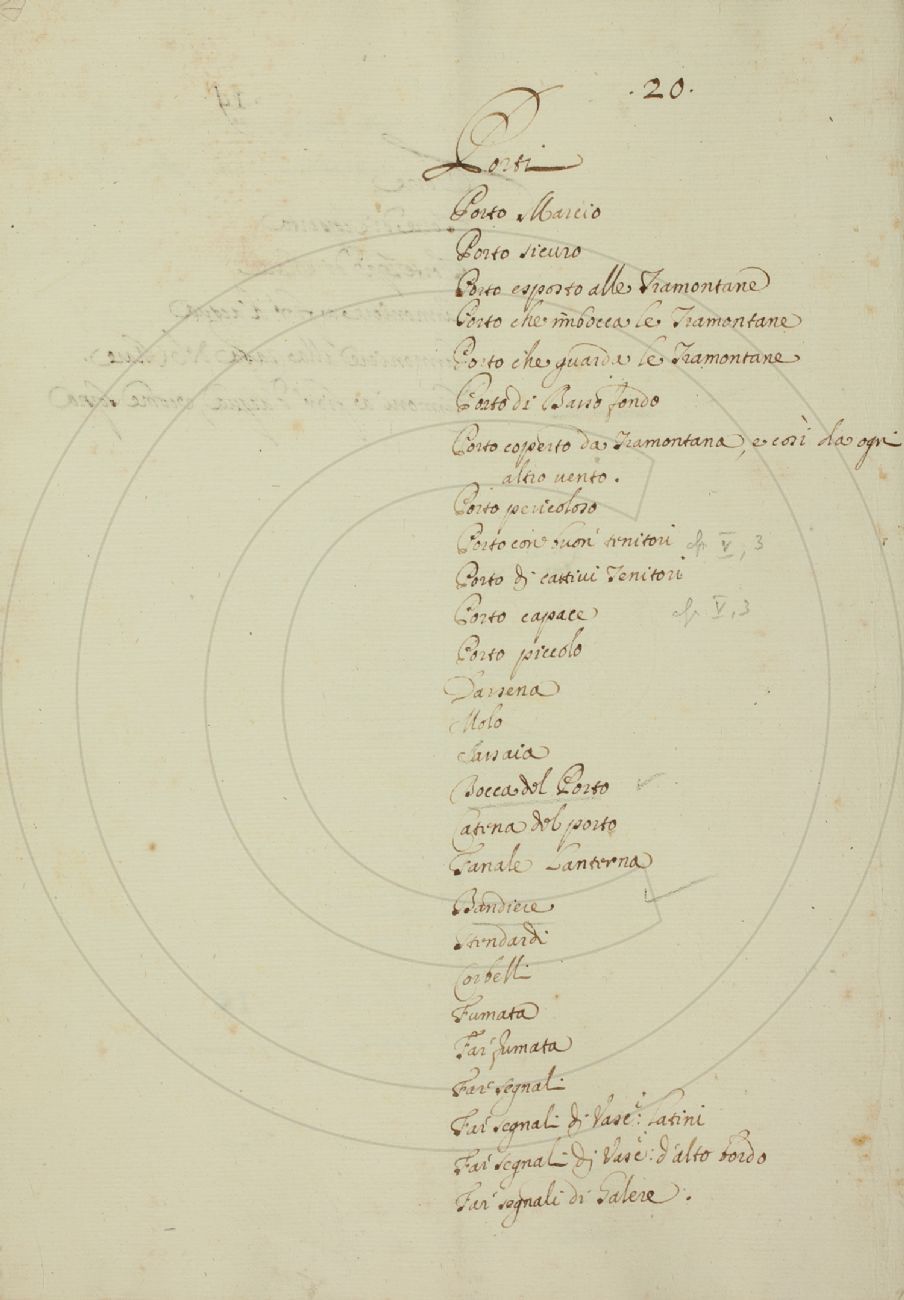 .20.
Porti
Porto Marcio
Porto sicuro
Porto esposto alle Tramontane
Porto che imbocca le Tramontane
Porto che guarda le Tramontane
Porto di Basso fondo
Porto coperto da Tramontana, e così da ogni
altro vento.
Porto pericoloso
Porto con buoni tenitori cfr V, 3
Porto di cattivi Tenitori
Porto capace cfr V, 3
Porto piccolo
Darsena
Molo
Bocca del Porto
Catena del porto
Fanale Lanterna
Bandiere
Stendardi
Corbelli
Fumata
Far fumata
Far segnali
Far segnali di Vasc:i Latini
Far segnali di Vasc:i d'alto bordo
Far segnali di Galere.